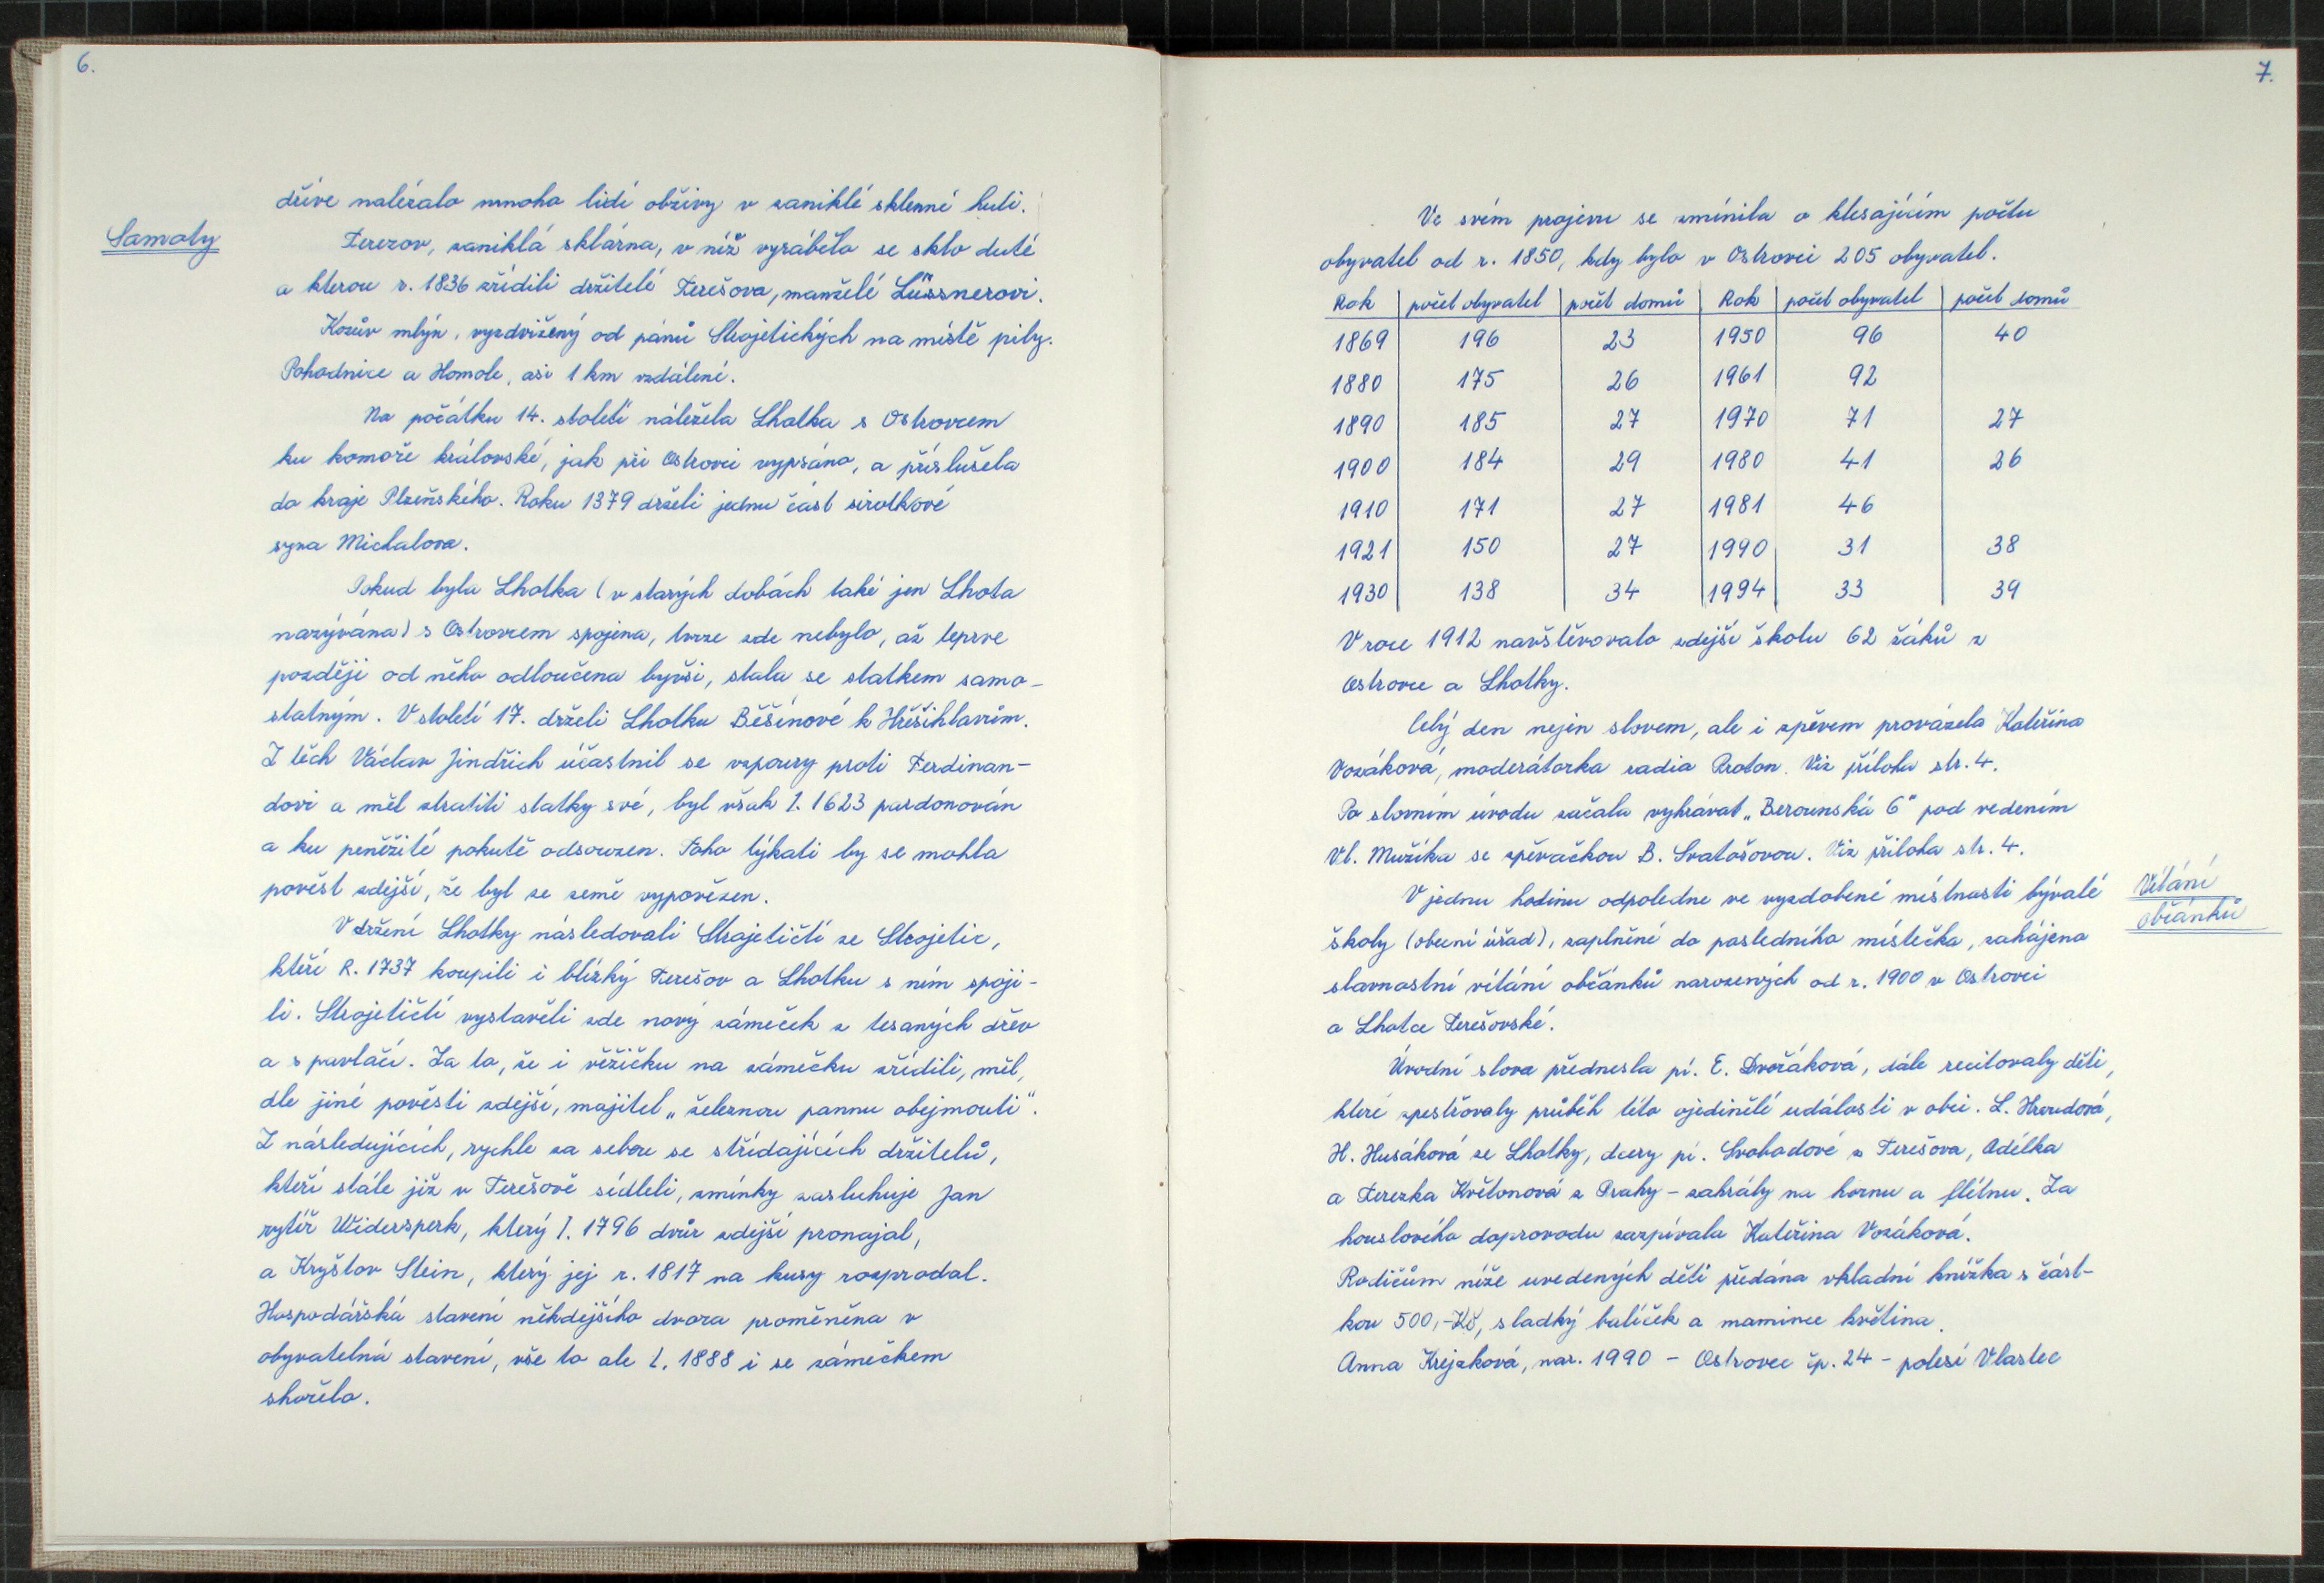 6.
dříve nalézalo mnoho lidí obživy v zaniklé sklenné huti.
Samoty
Terezov, zaniklá sklárna, v níž vyráběla se sklo duté
a kterou r. 1836 zřídili držitelé Terešova, manželé Lüssnerovi.
Kozův mlýn, vyzdvižený od pánů Strojetických na místě pily.
Pohodnice a Homole, asi 1 km vzdálené.
Na počátku 14. století náležela Lhotka s Ostrovcem
ku komoře královské, jak při Ostrovci vypsáno, a příslušela
do kraje Plzeňského. Roku 1379 drželi jednu část sirotkové
syna Michalova.
Pokud byla Lhotka (v starých dobách také jen Lhota
nazývána) s Ostrovcem spojena, tvrze zde nebylo, až teprve
později od něho odloučena byvši, stala se statkem samo-
statným. V století 17. drželi Lhotku Běšínové k Hřešihlavům.
Z těch Václav Jindřich účastnil se vzpoury proti Ferdinan-
dovi a měl ztratiti statky své, byl však l. 1623 pardonován
a ku peněžité pokutě odsouzen. Toho týkati by se mohla
pověst zdejší, že byl ze země vypovězen.
V držení Lhotky následovali Strojetičtí ze Strojetic,
kteří R. 1737 koupili i blízký Terešov a Lhotku s ním spoji-
li. Strojetičtí vystavěli zde nový zámeček z tesaných dřev
a s pavlačí. Za to, že i věžičku na zámečku zřídili, měl,
dle jiné pověsti zdejší, majitel „železnou pannu obejmouti".
Z následujících, rychle za sebou se střídajících držitelů,
kteří stále již v Terešově sídleli, zmínky zasluhuje Jan
rytíř Widersperk, který l. 1796 dvůr zdejší pronajal,
a Kryštov Stein, který jej r. 1817 na kusy rozprodal.
Hospodářská stavení někdejšího dvora proměněna v
obyvatelná stavení, vše to ale l. 1888 i se zámečkem
shořelo.
7.
Ve svém projevu se zmínila o klesajícím počtu
obyvatel od r. 1850, kdy bylo v Ostrovci 205 obyvatel.
Rok počet obyvatel počet domů Rok počet obyvatel počet domů
1869 196 23 1950 96 40
1880 175 26 1961 92
1890 185 27 1970 71 27
1900 184 29 1980 41 26
1910 171 27 1981 46
1921 150 27 1990 31 38
1930 138 34 1994 33 39
V roce 1912 navštěvovalo zdejší školu 62 žáků z
Ostrovce a Lhotky.
Celý den nejen slovem, ale i zpěvem provázela Kateřina
Vozáková, moderátorka radia Proton. Viz příloha str. 4.
Po slovním úvodu začala vyhrávat „Berounská 6" pod vedením
Vl. Mužíka se zpěvačkou B. Svatošovou. Viz příloha str. 4.
V jednu hodinu odpoledne ve vyzdobené místnosti bývalé
Vítání
občánků
školy (obecní úřad), zaplněné do posledního místečka, zahájena
slavnostní vítání občánků narozených od r. 1900 v Ostrovci
a Lhotce Terešovské.
Úvodní slova přednesla pí. E. Dvořáková, dále recitovaly děti,
které zpestřovaly průběh této ojedinělé události v obci. L. Hroudová,
H. Husáková ze Lhotky, dcery pí. Svobodové z Terešova, Adélka
a Terezka Květonová z Prahy - zahrály na hornu a flétnu. Za
houslového doprovodu zazpívala Kateřina Vozáková.
Rodičům níže uvedených dětí předána vkladní knížka s část-
kou 500,-Kč, sladký balíček a mamince květina.
Anna Krejzková, nar. 1990 - Ostrovec čp. 24 - polesí Vlastec